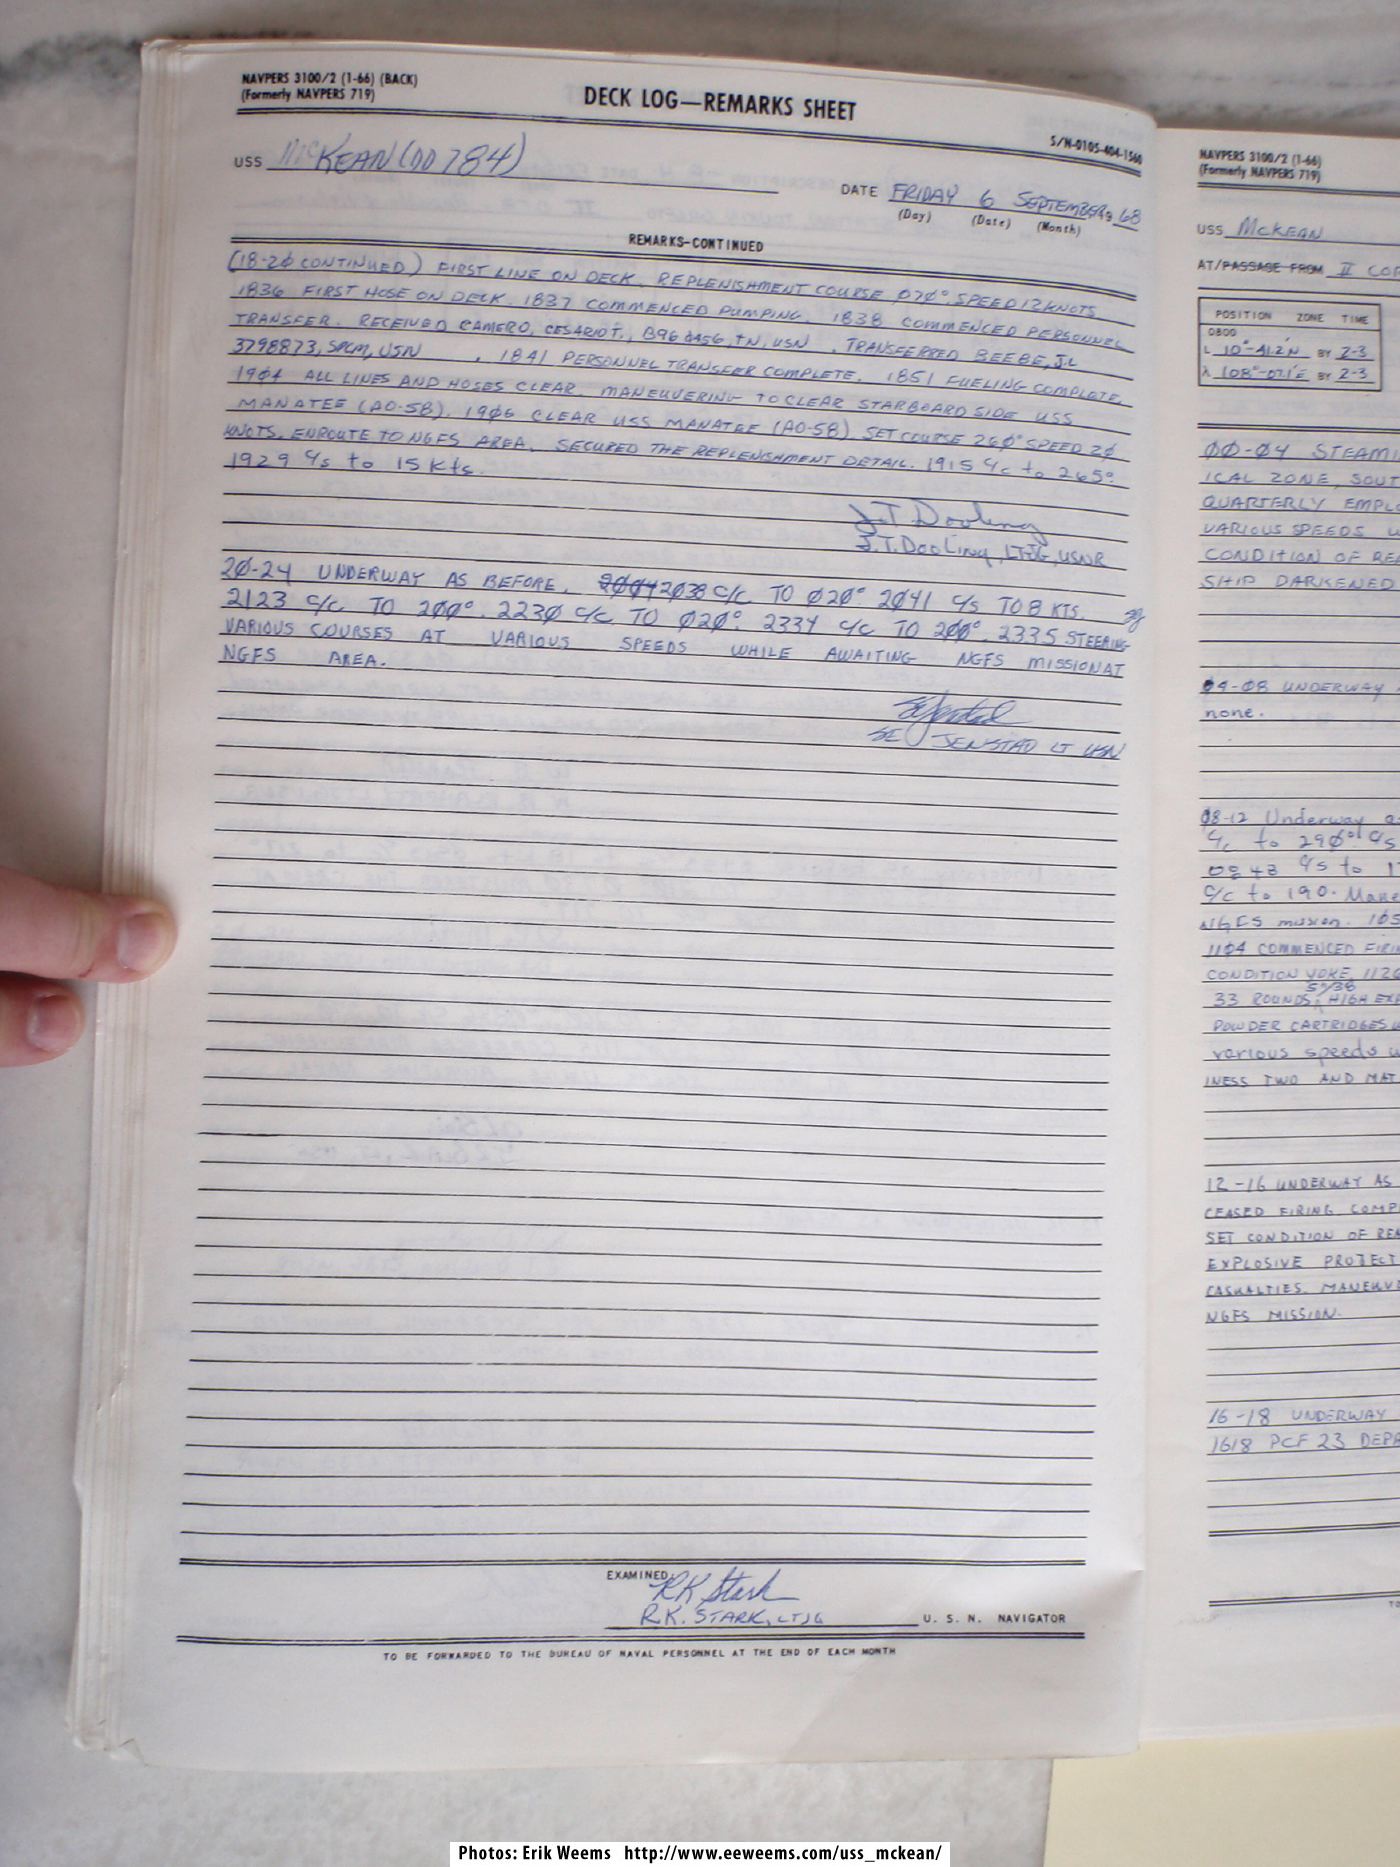 NAVPERS 3100/2 (1-66) (BACK)
(Formerly NAVPERS 719)
DECK LOG—REMARKS SHEET
S/N-0105-404-1560
USS McKEAN (DD784)
DATE FRIDAY 6 SEPTEMBER, 1968
(Day) (Date) (Month)
REMARKS-CONTINUED
(18-2Ø CONTINUED) FIRST LINE ON DECK. REPLENISHMENT COURSE Ø7Ø° SPEED 12 KNOTS
1836 FIRST HOSE ON DECK. 1837 COMMENCED PUMPING. 1838 COMMENCED PERSONNEL
TRANSFER. RECEIVED CAMERO, CESARIO T., B96 0456, TN, USN . TRANSFERRED BEEBE, J.L
3798873, SPCM, USN . 1841 PERSONNEL TRANSFER COMPLETE. 1851 FUELING COMPLETE.
19Ø4 ALL LINES AND HOSES CLEAR. MANEUVERING TO CLEAR STARBOARD SIDE USS
MANATEE (AO-58). 19Ø6 CLEAR USS MANATEE (AO-58). SET COURSE 26Ø° SPEED 2Ø
KNOTS. ENROUTE TO NGFS AREA. SECURED THE REPLENISHMENT DETAIL. 1915 c/c to 265°.
1929 c/s to 15 kts.
J.T. Dooling
J.T. Dooling, LTJG, USNR
2Ø-24 UNDERWAY AS BEFORE. 2Ø38 C/C TO Ø2Ø°. 2Ø41 C/S TO 8 KTS.
2123 C/C TO 2ØØ°. 223Ø C/C TO Ø2Ø°. 2334 C/C TO 2ØØ°. 2335 STEERING
VARIOUS COURSES AT VARIOUS SPEEDS WHILE AWAITING NGFS MISSION AT
NGFS AREA.
SE Jenstad
SE JENSTAD LT USN
EXAMINED:
RK Stark
R.K. STARK, LTJG
U. S. N. NAVIGATOR
TO BE FORWARDED TO THE BUREAU OF NAVAL PERSONNEL AT THE END OF EACH MONTH
NAVPERS 3100/2 (1-66)
(Formerly NAVPERS 719)
USS McKEAN
AT/PASSAGE FROM II
POSITION ZONE TIME
0800
L 10°-41.2'N BY 2-3
λ 108°-07.1'E BY 2-3
ØØ-Ø4
ICAL ZONE,
QUARTERLY
VARIOUS SPEEDS
CONDITION OF
SHIP DARKENED
Ø4-Ø8 UNDERWAY
none.
Ø8-12 Underway
c/c to 29Ø° c/s
0843 c/s to
c/c to 190.
NGFS mission.
11Ø4 COMMENCED
CONDITION YOKE.
5"/38
33 ROUNDS, HIGH
POWDER CARTRIDGES
various speeds
INESS TWO AND
12-16 UNDERWAY AS
CEASED FIRING
SET CONDITION OF
EXPLOSIVE
CASUALTIES.
NGFS MISSION.
16-18 UNDERWAY
1618 PCF 23
Photos: Erik Weems http://www.eeweems.com/uss_mckean/